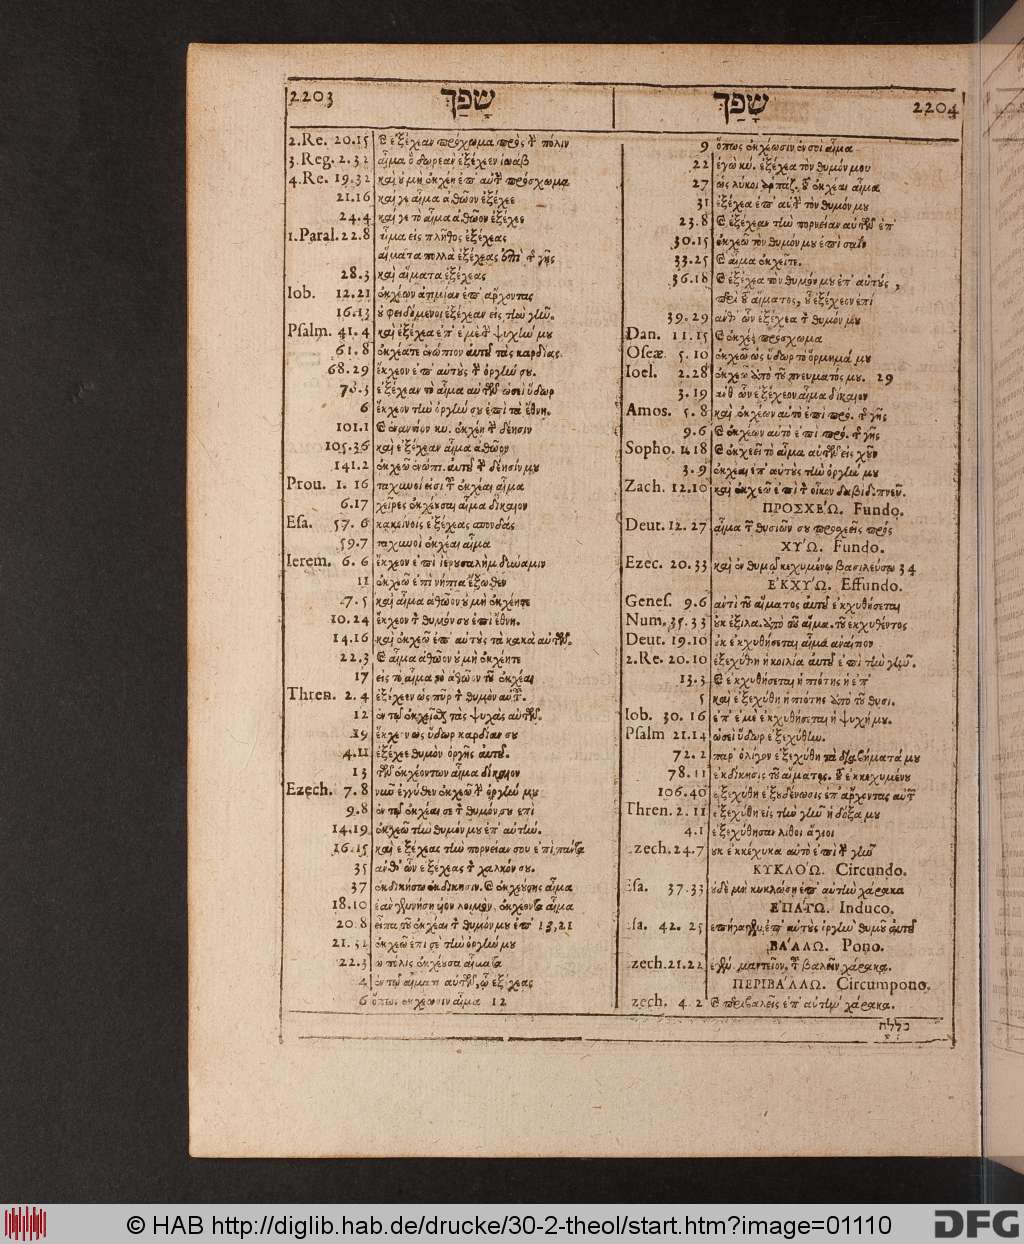 2203 שָׁפַךְ
2.Re. 20.15 ἐξέχεαν πρόχωμα πρὸς πόλιν
3.Reg. 2.31 αἷμα ὃ δωρεὰν ἐξέχεεν ἰωάβ
4.Re. 19.32 καὶ μὴ ἐκχέῃ πρόσχωμα
21.16 καί γε αἷμα ἀθῶον ἐξέχεε
24.4 καί γε τὸ αἷμα ἀθῶον ἐξέχεε
1.Paral. 22.8 αἷμα εἰς πλῆθος ἐξέχεας
αἵματα πολλὰ ἐξέχεας γῆς
28.3 καὶ αἵματα ἐξέχεας
Iob. 12.21 ἐκχέων ἀτιμίαν ἐπ' ἄρχοντας
16.13 φειδόμενοι ἐξέχεαν εἰς
Psalm. 41.4 καὶ ἐξέχεα ἐπ' ἐμὲ ψυχήν μου
61.8 ἐκχέατε ἐνώπιον αὐτοῦ τὰς καρδίας
68.29 ἔκχεον ἐπ' αὐτοὺς ὀργήν σου.
78.3 ἐξέχεαν τὸ αἷμα αὐτῶν ὡσεὶ ὕδωρ
6 ἔκχεον τὴν ὀργήν σου ἐπὶ τὰ ἔθνη.
101.1 ἐναντίον κυ. ἐκχέῃ δέησιν
105.36 καὶ ἐξέχεαν αἷμα ἀθῶον
141.2 ἐκχεῶ ἐνώπι. αὐτοῦ δέησίν μου
Prou. 1.16 ταχινοί εἰσι ἐκχέαι αἷμα
6.17 χεῖρες ἐκχέουσαι αἷμα δίκαιον
Esa. 57.6 κακείνοις ἐξέχεας σπονδάς
59.7 ταχινοὶ ἐκχέαι αἷμα
Ierem. 6.6 ἔκχεον ἐπὶ ἱερουσαλὴμ δύναμιν
11 ἐκχεῶ ἐπὶ νήπια ἔξωθεν
7.5 καὶ αἷμα ἀθῶον μὴ ἐκχέητε
10.24 ἔκχεον θυμόν σου ἐπὶ ἔθνη.
14.16 καὶ ἐκχεῶ ἐπ' αὐτοὺς τὰ κακὰ αὐτῶν.
22.3 αἷμα ἀθῶον μὴ ἐκχέητε
17 εἰς τὸ αἷμα τὸ ἀθῶον τοῦ ἐκχέαι
Thren. 2.4 ἐξέχεεν ὡς πῦρ θυμὸν αὐτοῦ.
12 ἐν τῷ ἐκχεῖσθαι τὰς ψυχὰς αὐτῶν.
19 ἔκχεον ὡς ὕδωρ καρδίαν σου
4.11 ἐξέχεε θυμὸν ὀργῆς αὐτοῦ.
13 τῶν ἐκχεόντων αἷμα δίκαιον
Ezech. 7.8 νῦν ἐγγύθεν ἐκχεῶ ὀργήν μου
9.8 ἐν τῷ ἐκχέαι σε θυμόν σου ἐπὶ
14.19 ἐκχεῶ τὸν θυμόν μου ἐπ' αὐτήν.
16.15 καὶ ἐξέχεας τὴν πορνείαν σου ἐπὶ πάντα
35 ἀνθ' ὧν ἐξέχεας χαλκόν σου.
37 ἐκδικήσω ἐκδικησιν. ἐκχεύσης αἷμα
18.10 ἐὰν γεννήσῃ υἱὸν λοιμὸν, ἐκχέοντα αἷμα
20.8 εἶπα τοῦ ἐκχέαι θυμόν μου ἐπ' 13, 21
21.31 ἐκχεῶ ἐπὶ σὲ τὴν ὀργήν μου
22.3 ὦ πόλις ἐκχέουσα αἵματα
4 ἐν τῷ αἵματι αὐτῶν, ᾧ ἐξέχεας
6 ὅπως ἐκχέωσιν αἷμα 12
שָׁפַךְ 2204
9 ὅπως ἐκχέωσιν ἐν σοὶ αἷμα
22 ἐγὼ κύ. ἐξέχεα τὸν θυμόν μου
27 ὡς λύκοι ἁρπάζ. ἐκχέαι αἷμα
31 ἐξέχεα ἐπ' αὐτ τὸν θυμόν μου
23.8 ἐξέχεαν τὴν πορνείαν αὐτῶν ἐπ'
30.15 ἐκχεῶ τὸν θυμόν μου ἐπὶ σαὶν
33.25 αἷμα ἐκχεῖτε.
36.18 ἐξέχεα τὸν θυμόν μου ἐπ' αὐτοὺς,
περὶ αἵματος, ἐξέχεον ἐπὶ
39.29 ἀνθ' ὧν ἐξέχεα θυμόν μου
Dan. 11.15 ἐκχέει πρόσχωμα
Oseæ 5.10 ἐκχεῶ ὡς ὕδωρ τὸ ὅρμημά μου
Ioel. 2.28 ἐκχεῶ ἀπὸ τοῦ πνευματός μου. 29
3.19 ἀνθ' ὧν ἐξέχεον αἷμα δίκαιον
Amos. 5.8 καὶ ἐκχέων αὐτὸ ἐπὶ προς. γῆς
9.6 ἐκχέων αὐτὸ ἐπὶ προς. γῆς
Sopho. 1.18 ἐκχεεῖ τὸ αἷμα αὐτῶν εἰς χοῦν
3.9 ἐκχέαι ἐπ' αὐτοὺς τὴν ὀργήν μου
Zach. 12.10 καὶ ἐκχεῶ ἐπὶ οἶκον δαβὶδ πνεῦ.
ΠΡΟΣΧΕ'Ω. Fundo.
Deut. 12.27 αἷμα θυσιῶν σου προσχεεῖς πρὸς
ΧΥ'Ω. Fundo.
Ezec. 20.33 καὶ ἐν θυμῷ κεχυμένῳ βασιλεύσω 34
Ε'ΚΧΥ'Ω. Effundo.
Genes. 9.6 ἀντὶ τοῦ αἵματος αὐτοῦ ἐκχυθήσεται
Num. 35.33 οὐκ ἐξιλα. ἀπὸ τοῦ αἵμα. τοῦ ἐκχυθέντος
Deut. 19.10 οὐκ ἐκχυθήσεται αἷμα ἀναίτιον
2.Re. 20.10 ἐξεχύθη ἡ κοιλία αὐτοῦ ἐπὶ τὴν γῆν.
13.3 ἐκχυθήσεται ἡ πιότης ἡ ἐπ'
5 καὶ ἐξεχύθη ἡ πιότης ἀπὸ τοῦ θυσι.
Iob. 30.16 ἐπ' ἐμὲ ἐκχυθήσεται ἡ ψυχή μου.
Psalm 21.14 ὡσεὶ ὕδωρ ἐξεχύθην.
72.2 παρ' ὀλίγον ἐξεχύθη τὰ διαβήματά μου
78.11 ἐκδίκησις τοῦ αἵματος. ἐκκεχυμένου
106.40 ἐξεχύθη ἐξουδένωσις ἐπ' ἄρχοντας αὐτ
Thren. 2.11 ἐξεχύθη εἰς τὴν γῆν ἡ δόξα μου
4.1 ἐξεχύθησαν λίθοι ἅγιοι
zech. 24.7 οὐκ ἐκκέχυκα αὐτὸ ἐπὶ γῆν
ΚΥΚΛΟ'Ω. Circundo.
Esa. 37.33 οὐδὲ μὴ κυκλώσῃ ἐπ' αὐτὴν χάρακα
Ε'ΠΑ'ΓΩ. Induco.
sa. 42.25 ἐπήγαγεν ἐπ' αὐτοὺς ὀργὴν θυμοῦ αὐτοῦ
ΒΑ'ΛΛΩ. Pono.
zech. 21.22 μαντεῖον, βαλεῖν χάρακα.
ΠΕΡΙΒΑ'ΛΛΩ. Circumpono.
zech. 4.2 περιβαλεῖς ἐπ' αὐτὴν χάρακα.
כללח
© HAB http://diglib.hab.de/drucke/30-2-theol/start.htm?image=01110
DFG